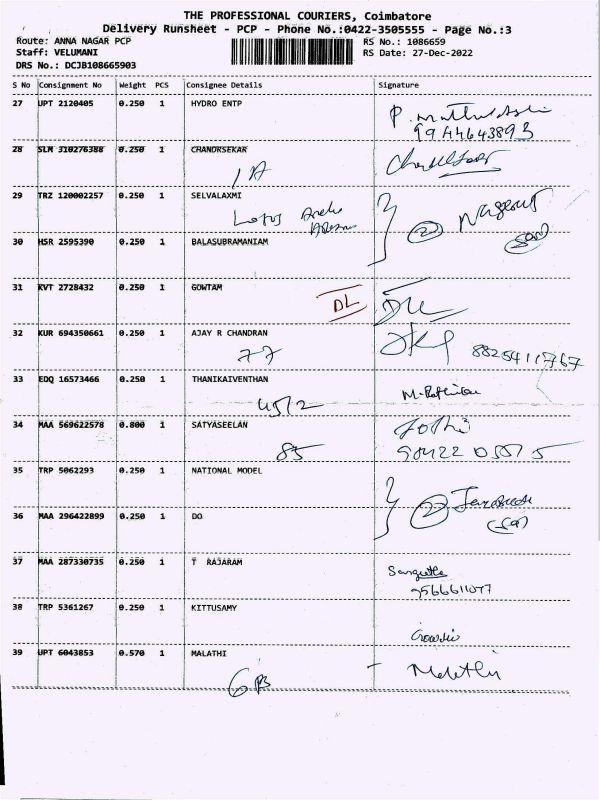 THE PROFESSIONAL COURIERS, Coimbatore
Delivery Runsheet - PCP - Phone No.:0422-3505555 - Page No.:3
Route: ANNA NAGAR PCP
RS No.: 1086659
Staff: VELUMANI
RS Date: 27-Dec-2022
DRS No.: DCJB108665903
S No Consignment No Weight PCS Consignee Details Signature
27 UPT 2120405 0.250 1 HYDRO ENTP
9944643893
28 SLM 310276388 0.250 1 CHANDRSEKAR
1A
29 TRZ 120002257 0.250 1 SELVALAXMI
2
30 HSR 2595390 0.250 1 BALASUBRAMANIAM
31 KVT 2728432 0.250 1 GOWTAM
DL
32 KUR 694350661 0.250 1 AJAY R CHANDRAN
77
33 EDQ 16573466 0.250 1 THANIKAIVENTHAN
45/2
34 MAA 569622578 0.800 1 SATYASEELAN
85
35 TRP 5062293 0.250 1 NATIONAL MODEL
2
36 MAA 296422899 0.250 1 DO
37 MAA 287330735 0.250 1 T RAJARAM
Sangeetha
9566611077
38 TRP 5361267 0.250 1 KITTUSAMY
39 UPT 6043853 0.570 1 MALATHI
Malathi